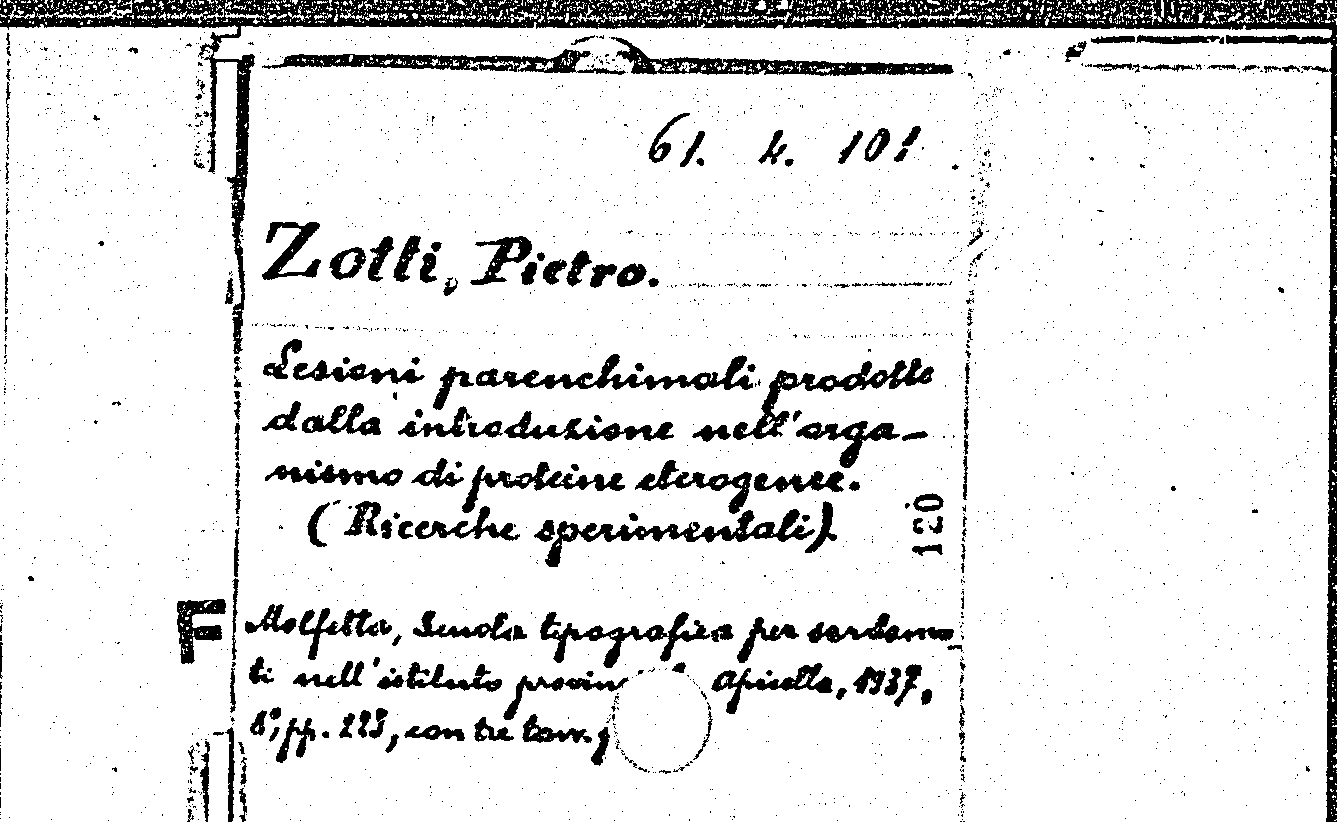 61. 4. 10!
Zotti, Pietro.
Lesioni parenchimali prodotte
dalla introduzione nell'orga-
nismo di proteine eterogenee.
(Ricerche sperimentali).
120
Molfetta, Scuola tipografica per sordomu
ti nell'istituto Apicella, 1937,
8°, pp. 223, con tre tavv.